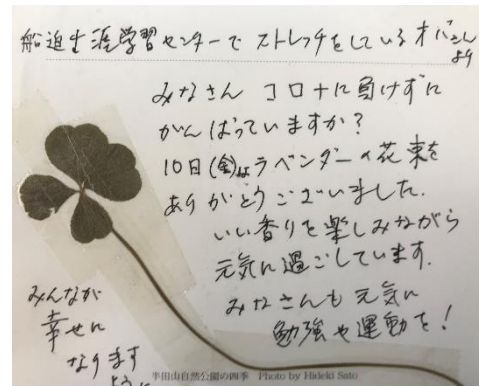 船迫生涯学習センターで ストレッチをしているオバさん
より
みなさん コロナに負けずに
がんばっていますか?
10日(金)はラベンダーの花束を
ありがとうございました.
いい香りを楽しみながら
元気に過ごしています.
みなさんも元気に
勉強や運動を!
みんなが
幸せに
なります
ように
半田山自然公園の四季 Photo by Hideki Sato